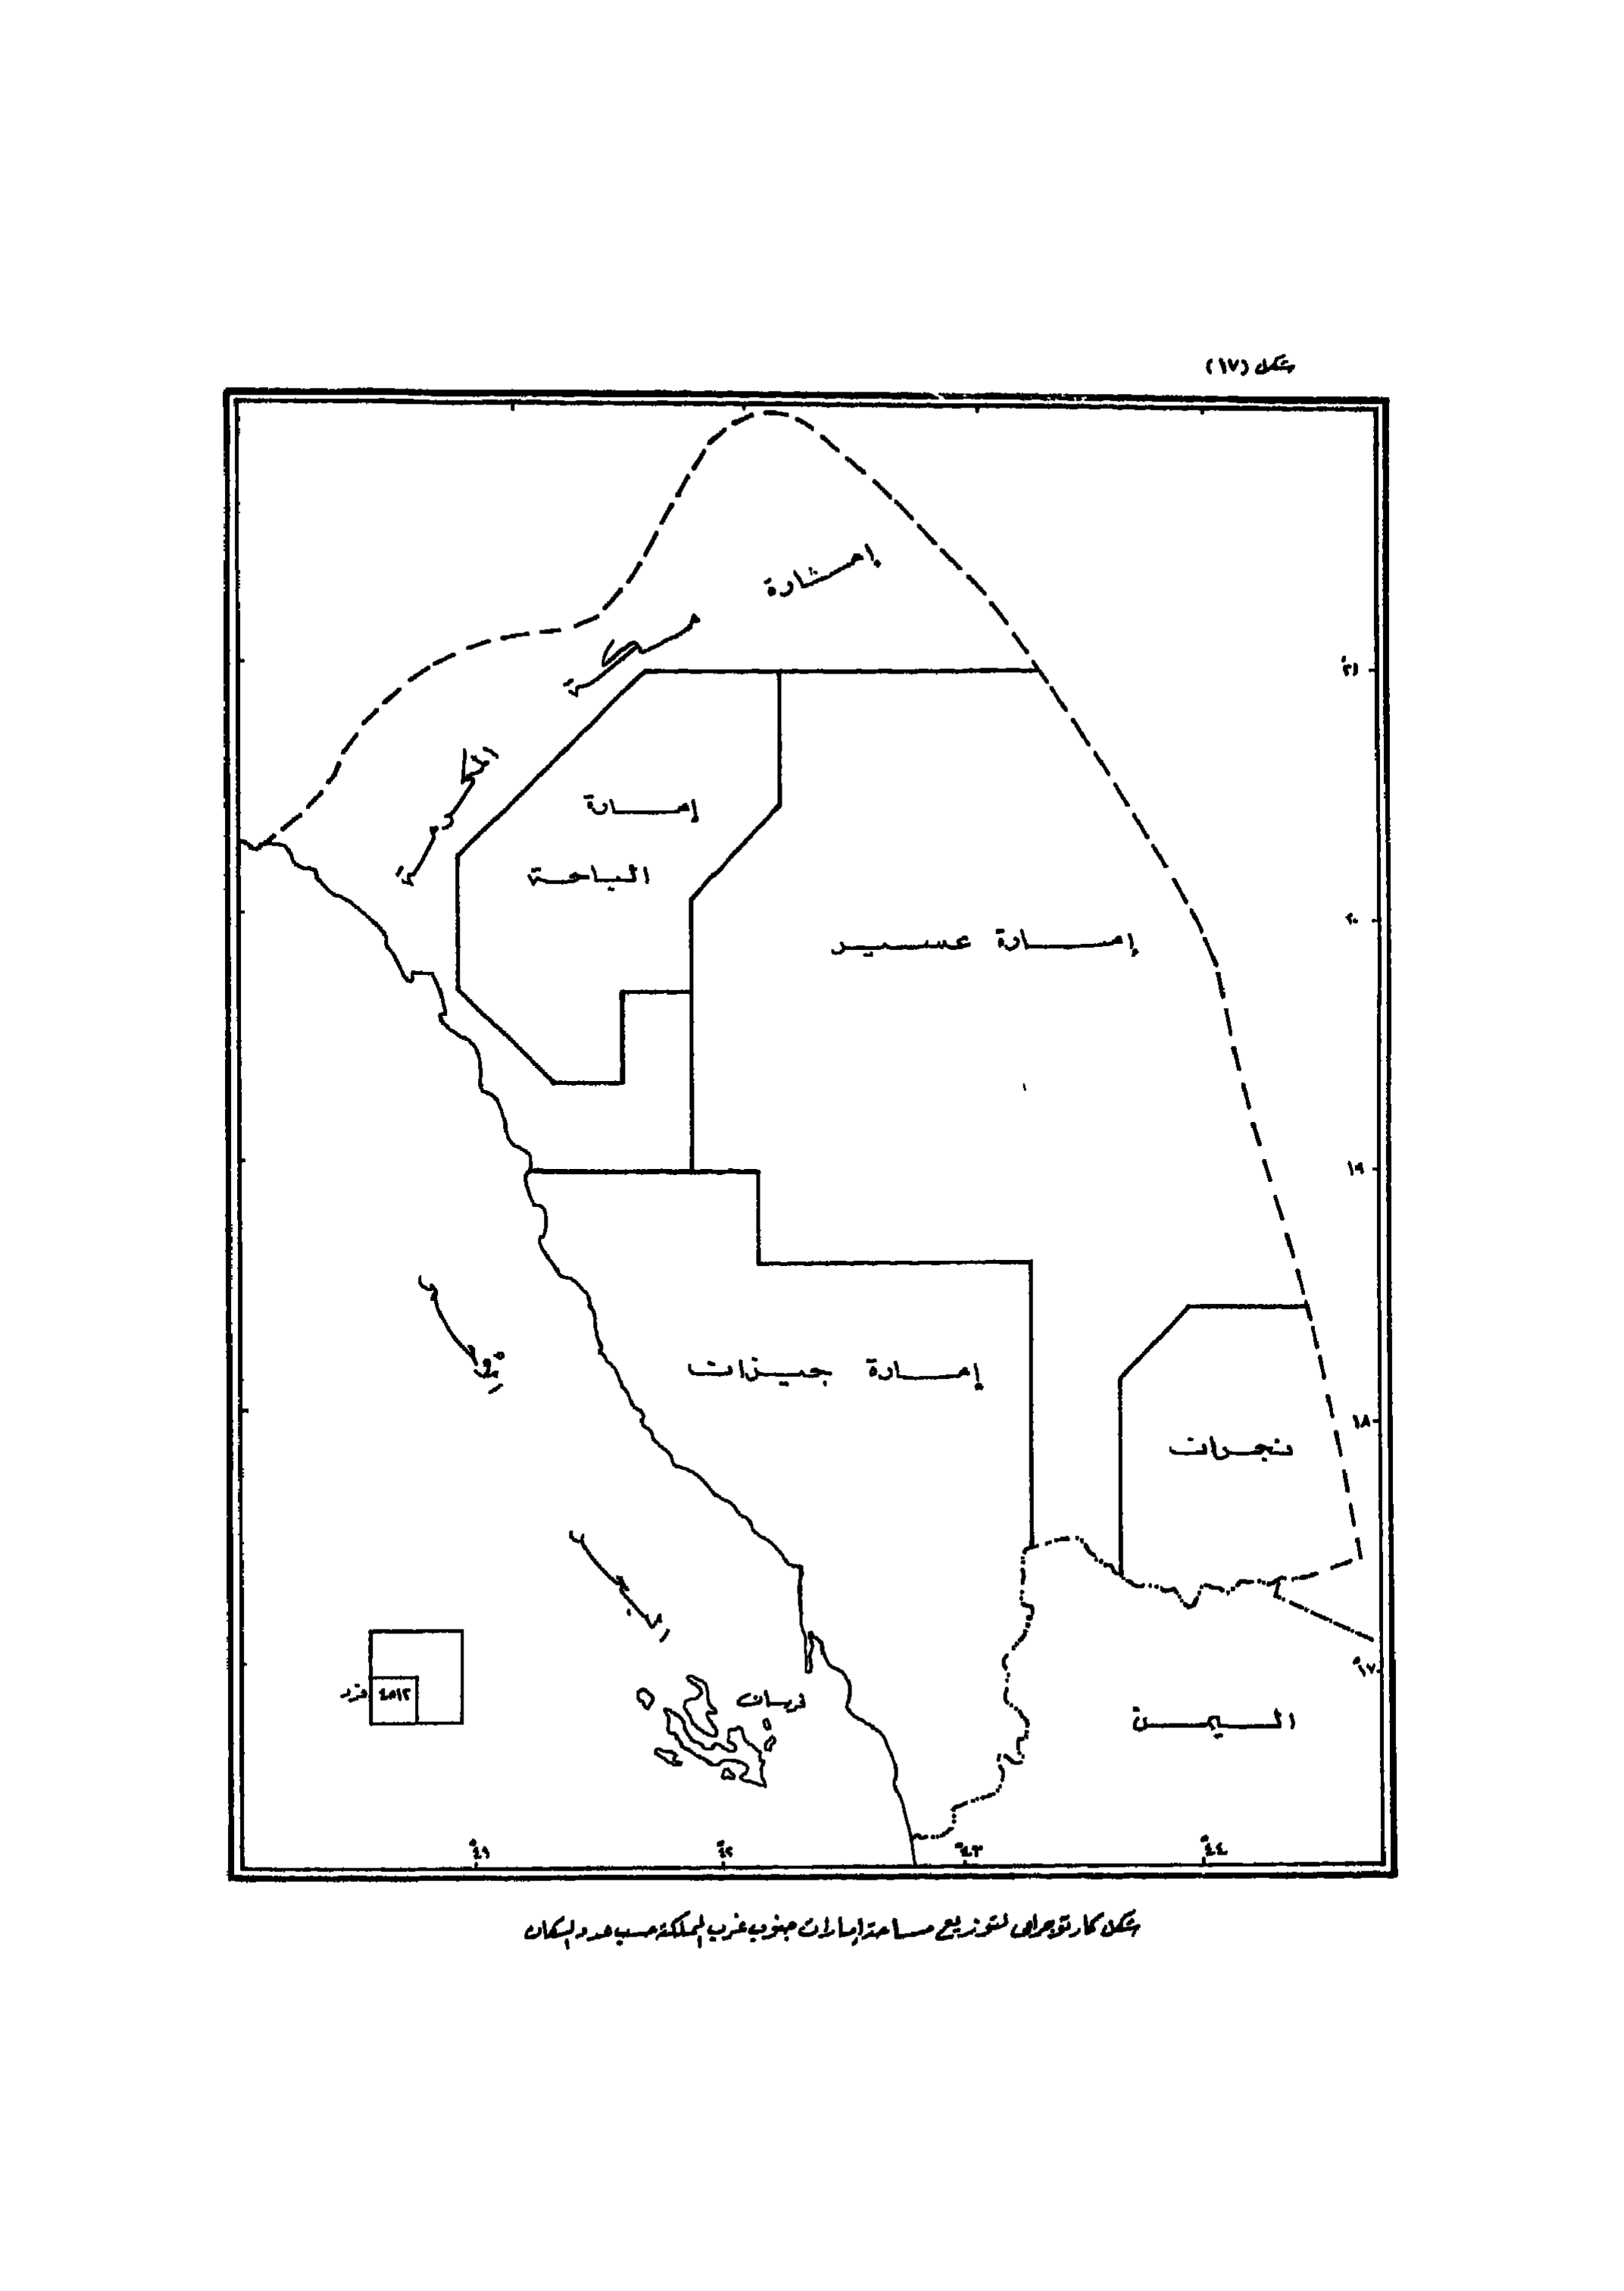 شكل (١٧)
إمارة
مكة
المكرمة
٢١°
إمارة
الباحة
٢٠
إمارة عسير
١٩
إمارة جيزان
١٨
نجران
البحر
١٧°
فرسان
٤٥١٢ فرد
اليمن
٤١° ٤٢° ٤٣° ٤٤°
شكل كارتوجرامى لتوزيع مساحة إمارات جنوب غرب المملكة حسب عدد السكان